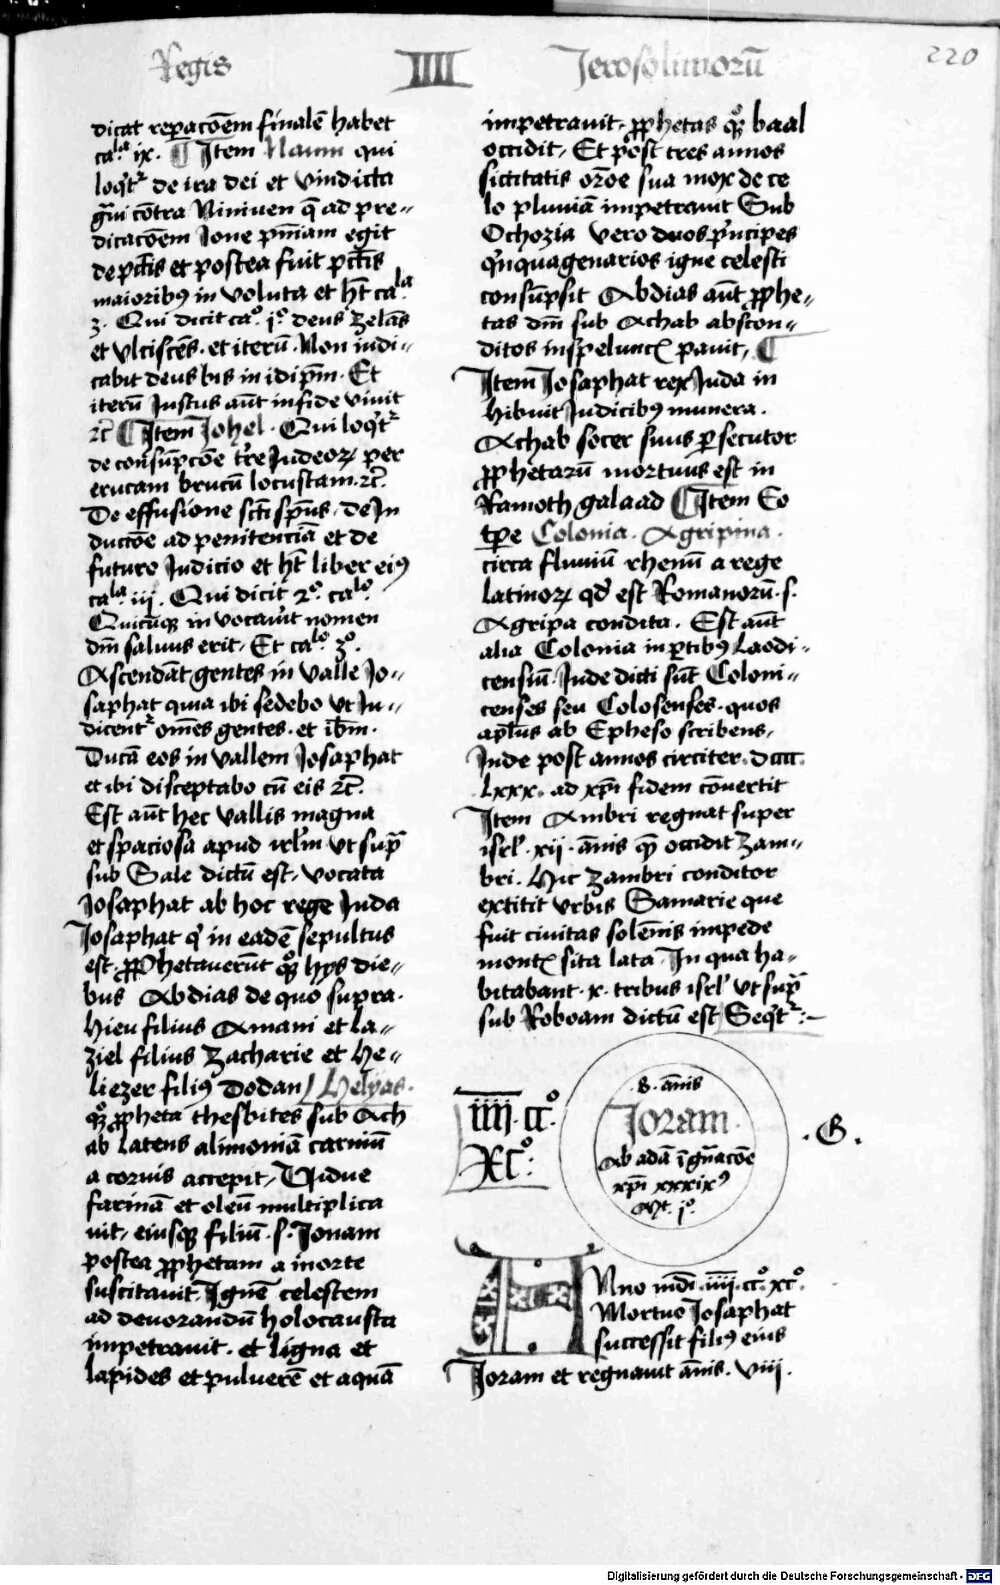 Regis IIII Jerosolimorū 220
dicat repacōem finalē habet
caˡᵃ ix. ¶ Item Naum qui
loqͥtᷣ de ira dei et vindicta
gͣui cōtra Niniuen q̄ ad pre〃
dicacōem Jone pn̄iam egit
de pct̄is et postea fuit pct̄is
maioribꝰ in voluta et hꝫ caˡᵃ
3. Qui dicit caᵒ jᵒ deus zelās
et vlciscēs. et iterū. Non iudi〃
cabit deus bis in idip̄m. Et
iterū Justus aūt in fide viuit
⁊c̄ ¶ Item Johel. Qui loqͥtᷣ
de consūpcōe tr̄e Judeoꝝ per
erucam brucū locustam.⁊c̄.
De effusione sc̄ti sp̄us. de In
ductōe ad penitenciā et de
futuro Judicio et hꝫ liber eiꝰ
caˡᵃ iij. Qui dicit 2ᵒ. caˡᵒ.
Quicūqꝫ in vocauīt nomen
dn̄i saluus erit. Et caˡᵒ 3ᵒ.
Ascendāt gentes in valle Jo〃
saphat quia ibi sedebo vt Ju〃
dicentᷣ om̄es gentes. et ib̄m.
Ducā eos in vallem Josaphat
et ibi disceptabo cū eis ⁊c̄.
Est aūt hec vallis magna
et spaciosa apud irlm̄ vt supͣ
sub Sale dictū est. vocata
Josaphat ab hoc rege Juda
Josaphat qͥ in eadē sepultus
est. ꝓphetauerūt qͦqꝫ hijs die〃
bus Abdias de quo supra.
Hieu filius Amani et la〃
ziel filius Zacharie et He〃
liezer filiꝰ Dodan / Helyas.
qͦqꝫ ꝓpheta thesbites sub Ach
ab latens alimoniā carniū
a coruis accepit. Vidue
farinā et oleū multiplica
uit. eiusqꝫ filiū. s. Jonam
postea ꝓphetam a morte
suscitauit. Ignē celestem
ad deuorandū holocausta
impetrauit. et ligna et
lapides et puluerē et aquā
impetrauit. ꝓphetas qͦqꝫ baal
occidit. Et post tres annos
siccitatis or̄oe sua mox de ce
lo pluuiā impetrauit Sub
Ochozia vero duos pͥncipes
qͥnquagenarios igne celesti
consūpsit Abdias aūt ꝓphe〃
tas dn̄i sub Achab abscon〃
ditos in speluncꝭ pauit. ¶
Item Josaphat rex Juda in
hibuit Judicibꝰ munera.
Achab socer suus ꝑsecutor
ꝓphetarū mortuus est in
Ramoth galaad ¶ Item Eo
tꝑe Colonia. Agripina.
circa fluuiū rhenū a rege
latinoꝝ qd̄ est Romanorū. s.
Agripa condita. Est aūt
alia Colonia in ꝑtibꝰ Laodi〃
censiū. Inde dicti sūt Coloni〃
censes seu Colosenses. quos
apl̄us ab Epheso scribens.
Inde post annos circiter. dccc.
lxxx. ad xp̄i fidem cōuertit
Item Ambri regnat super
isrl̄. xij. ānis qͥ occidit Zam〃
bri. Hic Zambri conditor
extitit vrbis Samarie que
fuit ciuitas solēnis in pede
montꝭ sita lata. In qua ha〃
bitabant. x. tribus isrl̄ vt supͣ
sub Roboam dictū est Seqͥtᷣ:~
iiij. ccᵒ.
xcᵒ:
8. ānis
Joram.
Ab adā ī gn̄acōe
xp̄i xxxixꝰ
. G.
Anno mūdi. iiij. ccᵒ. xcᵒ.
Mortuo Josaphat
successit filiꝰ eius
Joram et regnauit ānis. viij.
Digitalisierung gefördert durch die Deutsche Forschungsgemeinschaft - DFG